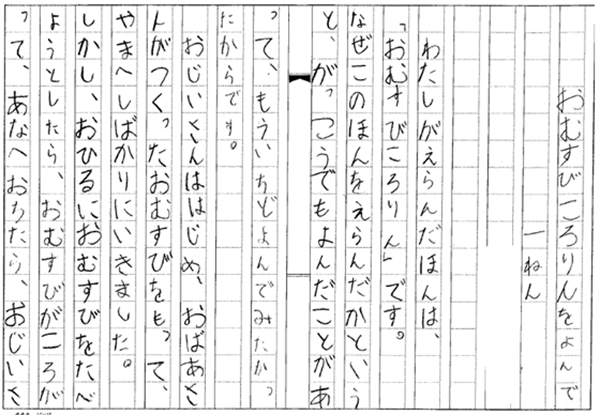 おむすびころりんをよんで
一ねん
わたしがえらんだほんは、
「おむすびころりん」です。
なぜこのほんをえらんだかという
と、がっこうでもよんだことがあ
って、もういちどよんでみたかっ
たからです。
おじいさんははじめ、おばあさ
んがつくったおむすびをもって、
やまへしばかりにいきました。
しかし、おひるにおむすびをたべ
ようとしたら、おむすびがころが
って、あなへおちたら、おじいさ